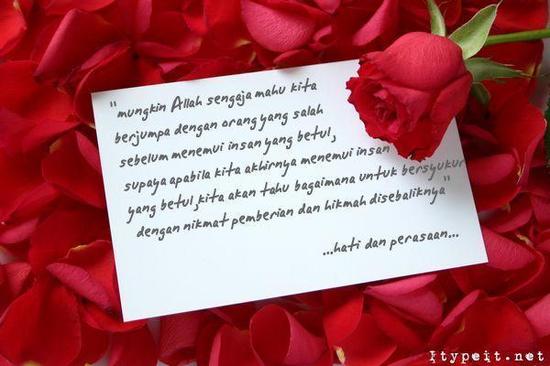 "mungkin Allah sengaja mahu kita
berjumpa dengan orang yang salah
sebelum menemui insan yang betul,
supaya apabila kita akhirnya menemui insan
yang betul,kita akan tahu bagaimana untuk bersyukur
dengan nikmat pemberian dan hikmah disebaliknya"
...hati dan perasaan...
Itypeit.net